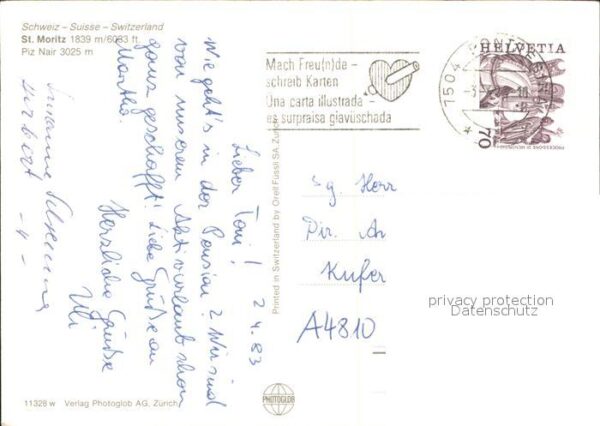 Schweiz – Suisse – Switzerland
St. Moritz 1839 m/6033 ft.
Piz Nair 3025 m
Mach Freu(n)de –
schreib Karten
Una carta illustrada –
es surpraisa giavüschada
7504
HELVETIA
70
2 4.83
Lieber Toni!
Wie geht's in der Pension? Wir sind
von unserem Aktivurlaub schon
ganz geschafft! Liebe Grüße an
Martha.
Herzliche Grüße
Uli
Printed in Switzerland by Orell Füssli SA Zürich
Sg. Herr
Dir. An
Kufer
A4810
privacy protection
Datenschutz
11328 w Verlag Photoglob AG, Zürich
PHOTOGLOB